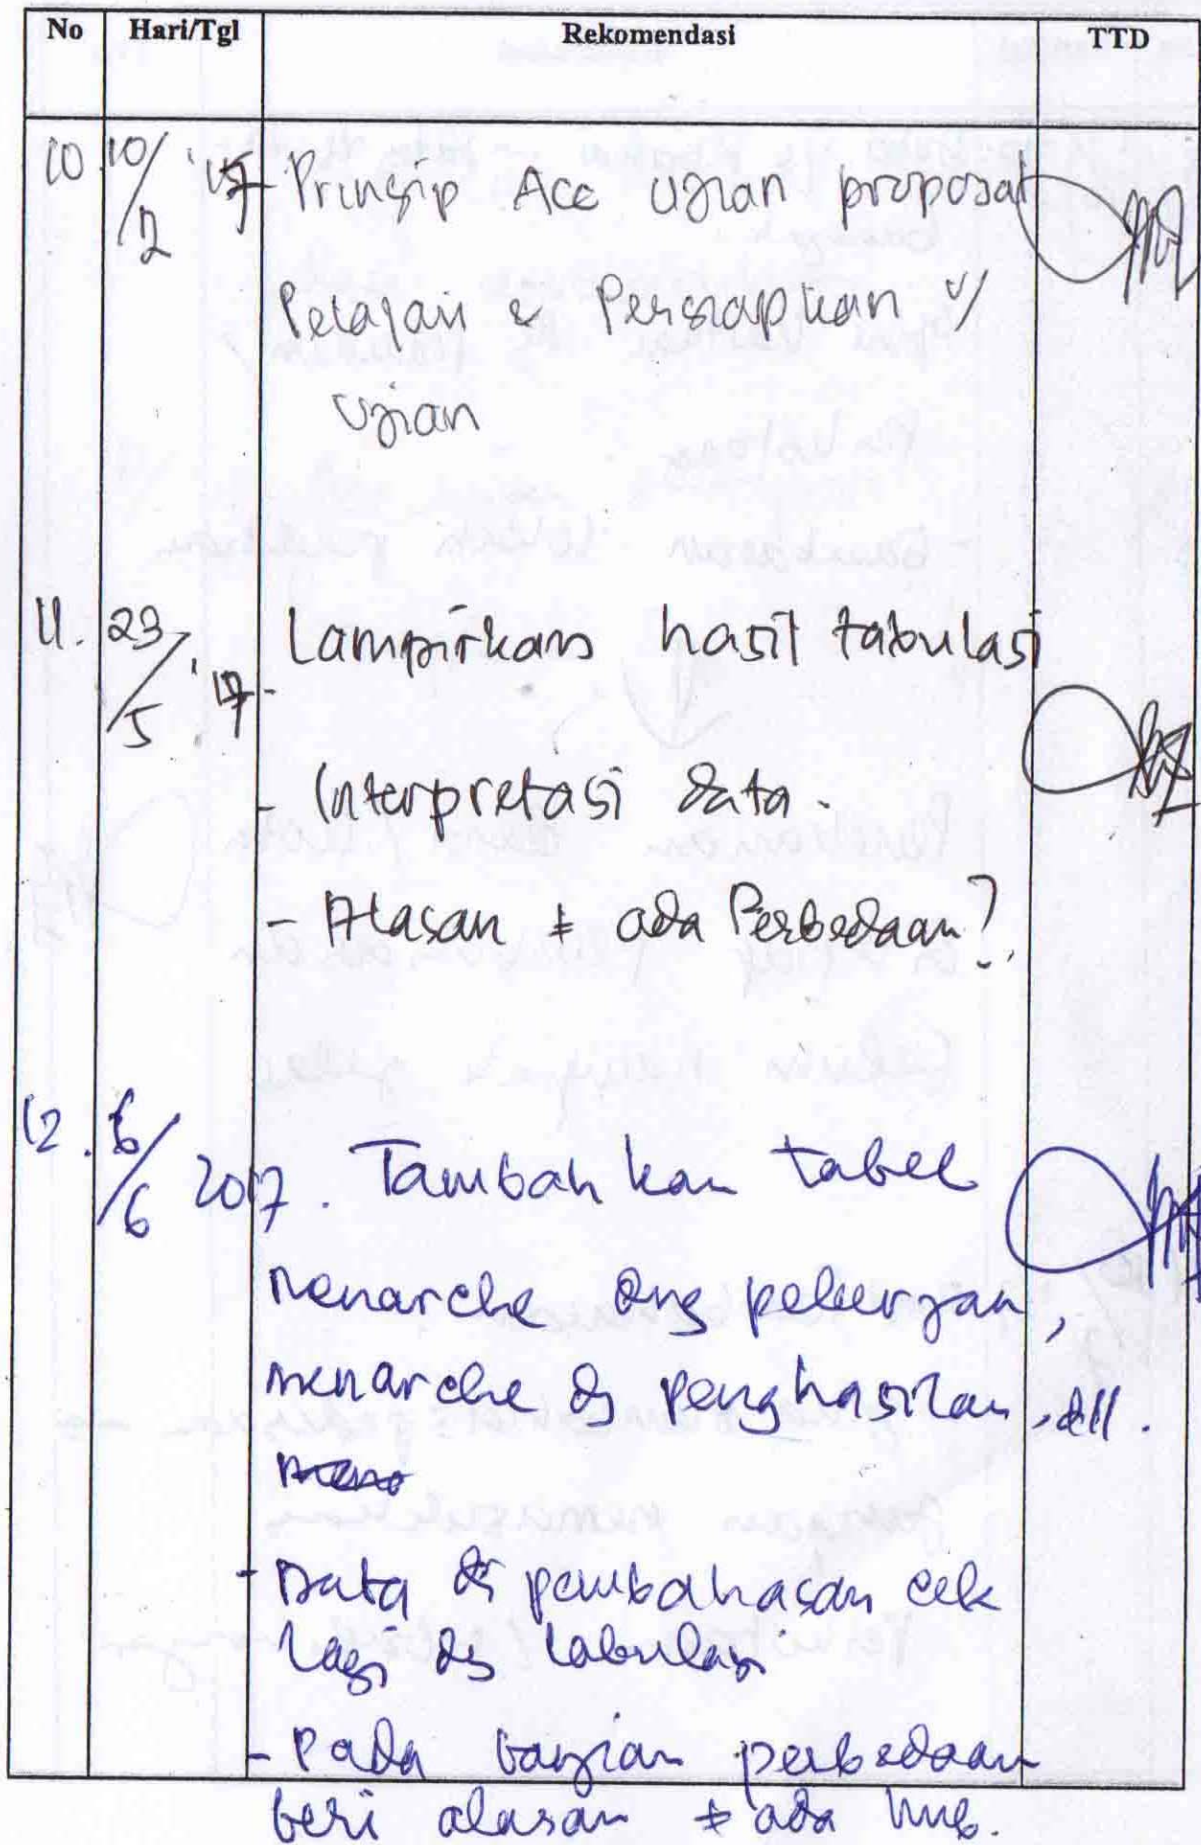 No Hari/Tgl Rekomendasi TTD
10 10/2 '17 - Prinsip Acc ujian proposal
Pelajari & Persiapkan u/
ujian
11. 23/5 '17 - Lampirkan hasil tabulasi
- Interpretasi data.
- Alasan ≠ ada Perbedaan?
12. 6/6 2017. Tambahkan tabel
menarche dng pekerjaan,
menarche dg penghasilan, dll.
- Data di pembahasan cek
lagi dg tabulasi
- Pada bagian perbedaan
beri alasan ≠ ada hub.